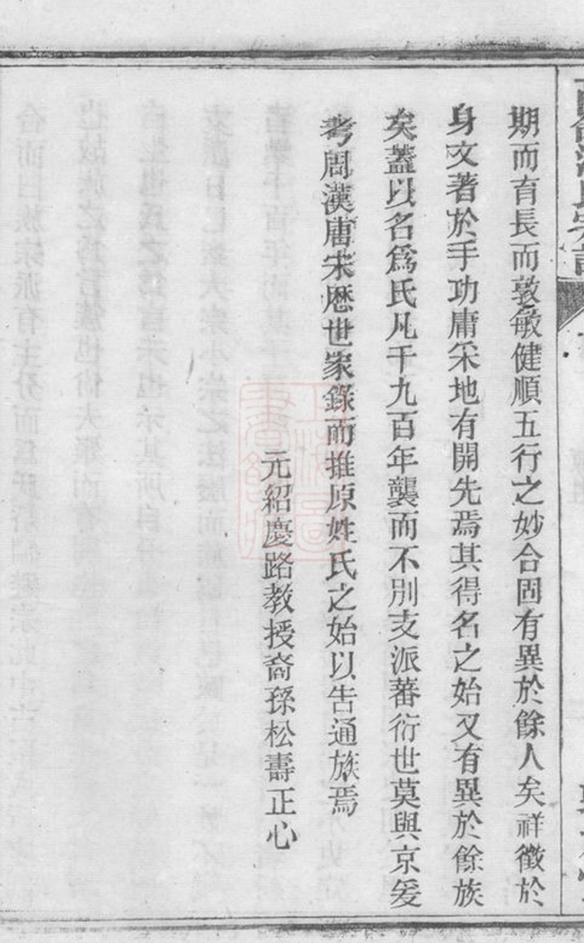 期而育長而敦敏健順五行之妙合固有異於餘人矣祥徵於
身文著於手功庸采地有開先焉其得名之始又有異於餘族
矣蓋以名爲氏凡千九百年襲而不別支派蕃衍世莫與京爰
考周漢唐宋歷世家錄而推原姓氏之始以告通族焉
元紹慶路教授裔孫松壽正心